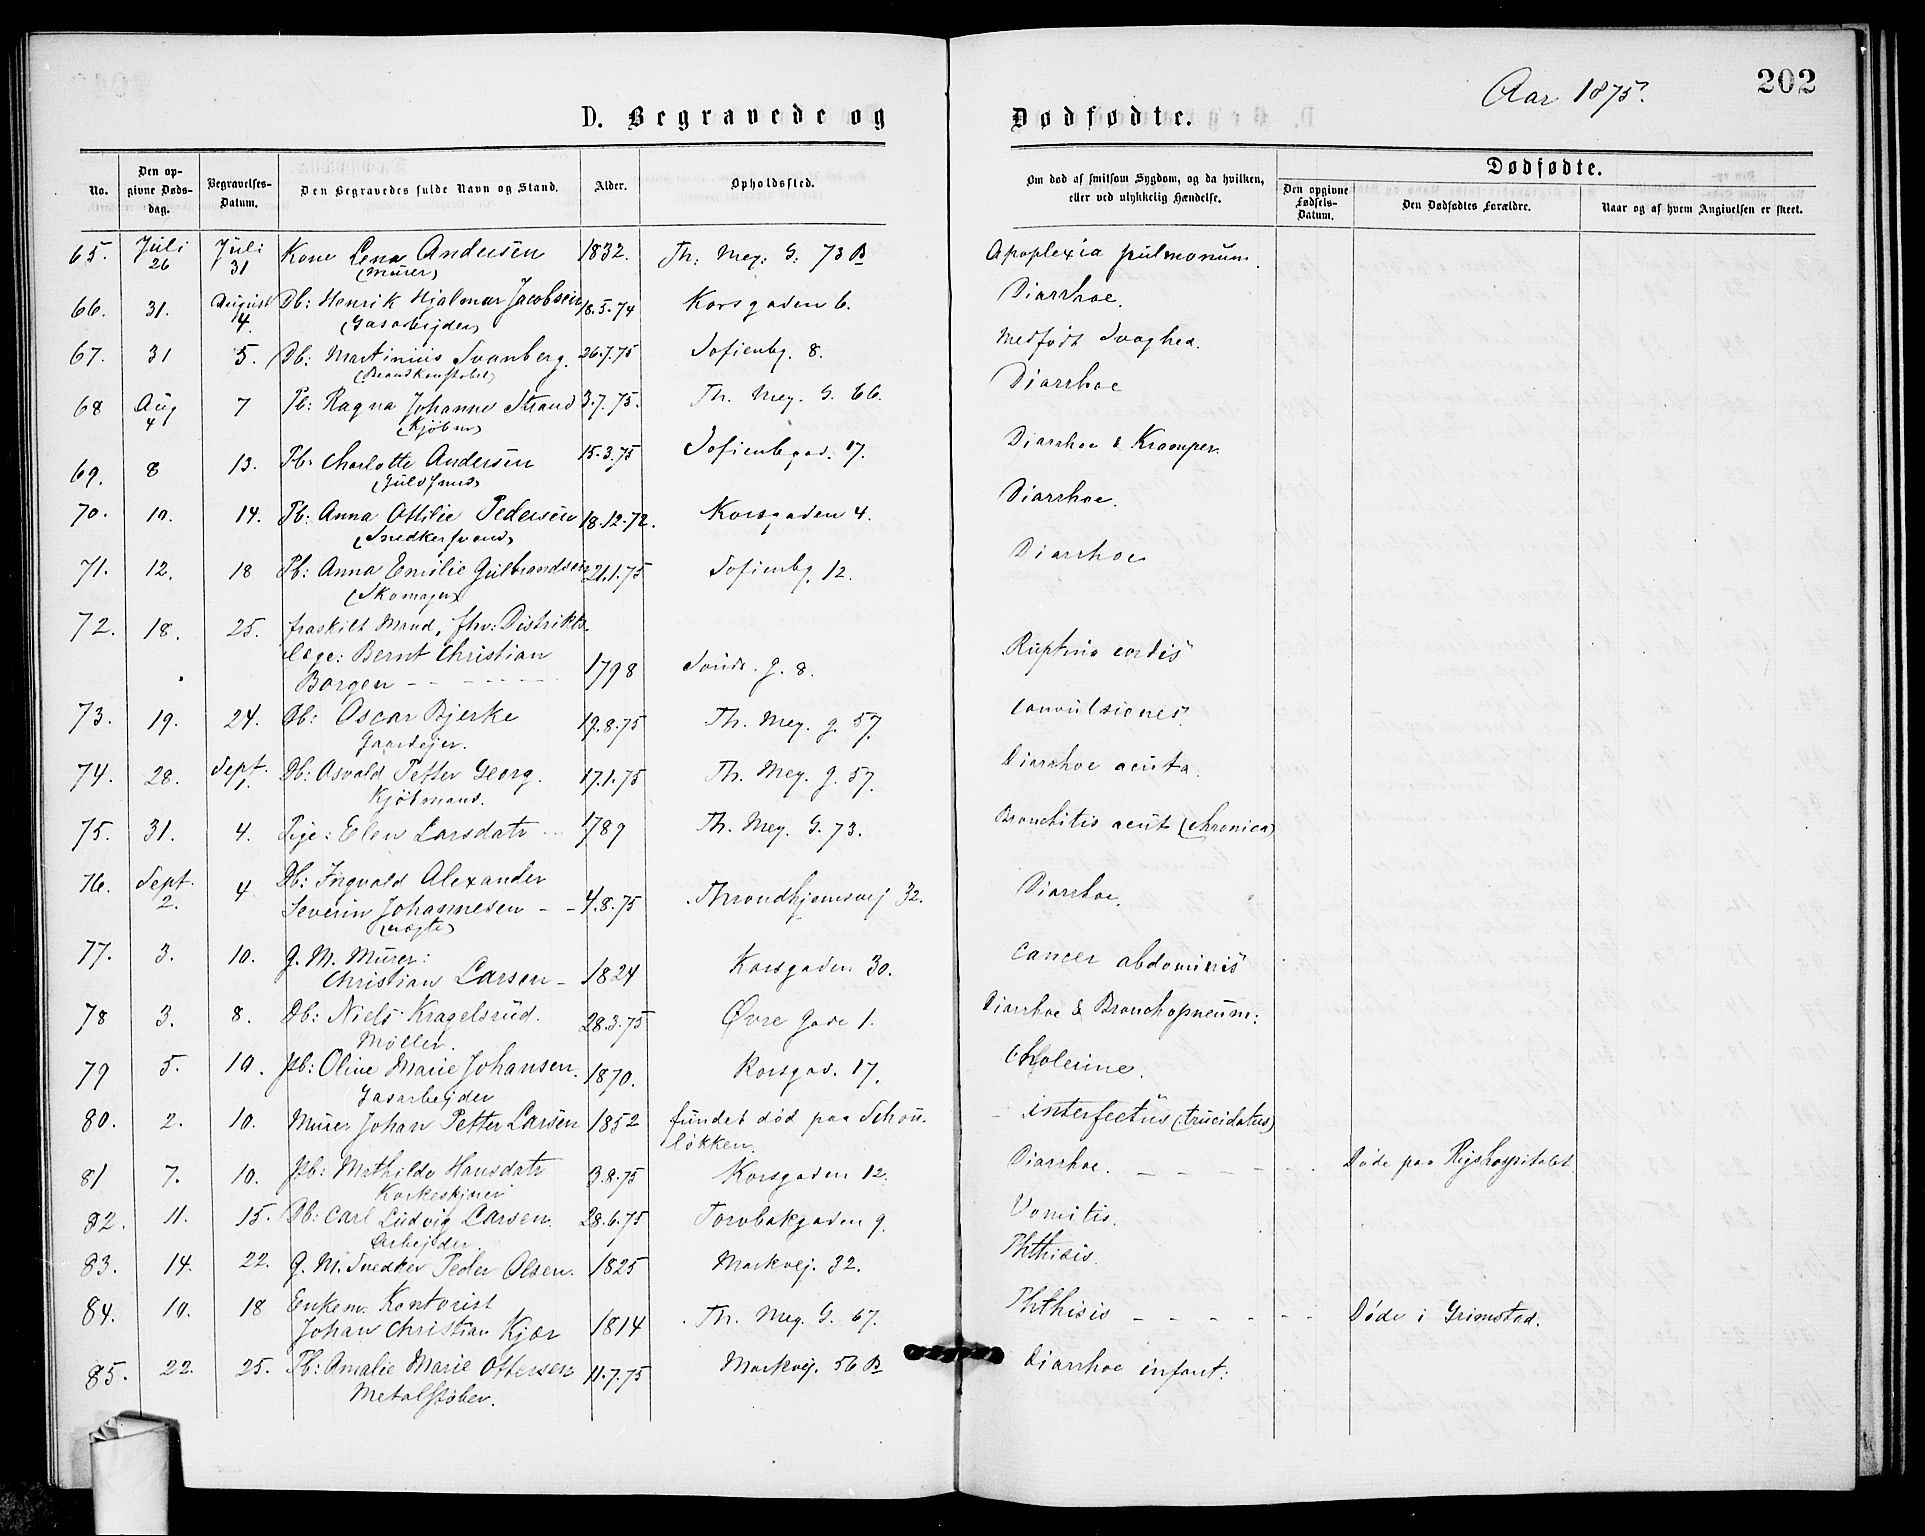 Aar 1875.
202
D. Begravede og
Dødfødte.
No.
Den opgivne Dødsdag.
Begravelses-Datum.
Den Begravedes fulde Navn og Stand.
Alder.
Opholdssted.
Om død af smitsom Sygdom, og da hvilken, eller ved ulykkelig Hændelse.
Dødfødte.
Den opgivne Fødsels-Datum.
Den Dødfødtes Forældre.
Naar og af hvem Angivelsen er skeet.
65. Juli 26 Juli 31 Kone Lena Andersen 1832. Th: Mey: G: 73 B Apoplexia pulmonum.
(Murer)
66. 31. August 4. Db: Henrik Hjalmar Jacobsen 18.5.74 Korsgaden 6. Diarrhoe.
(Gasarbejder)
67. 31 5. Db: Martinius Svanberg. 26.7.75 Sofienbg. 8. Medfødt Svaghed.
(Brandkonstabel)
68 Aug 4 7 Pb: Ragna Johanne Strand 3.7.75. Th. Mey. G. 66. Diarrhoe
(Kjøbm)
69. 8 13. Pb: Charlotte Andersen 15.3.75 Sofienbgad. 17. Diarrhoe & Kramper
(Guldsmed)
70. 10. 14. Pb: Anna Ottilie Pedersen 18.12.72. Korsgaden 4. Diarrhoe.
(Snedkersvend)
71. 12. 18 Pb: Anna Emilie Gulbrandsen 21.1.75 Sofienbg. 12. Diarrhoe
(Skomager)
72. 18. 25. fraskilt Mand, fhv: Distrikts-
læge: Bernt Christian
Borgen - - - - 1798 g. 8. Ruptura cordis
73. 19. 24. Db: Oscar Bjerke 19.8.75 Th. Mey. g. 57. Convulsiones.
Gaardejer.
74. 28. Sept. 1. Db: Asvald Petter Georg. 17.1.75 Th. Mey. g. 57. Diarrhoe acuta.
Kjøbmand.
75. 31. 4. Pige: Elen Larsdatr 1789 Th. Mey. G. 73. Bronchitis acut (chronica)
76. Sept. 2. 4 Db: Ingvald Alexander
Severin Johannesen - - 4.8.75 Throndhjemsvej 32. Diarrhoe.
77. 3. 10. g. M. Murer:
Christian Larsen - 1824 Korsgaden 30. Cancer abdominis
78 3. 8. Db: Niels Kragelsrud. 28.3.75 Øvre Gade 1. Diarrhoe & Bronchopneum:
Møller.
79 5. 10. Pb: Oline Marie Johansen. 1870. Korsgad. 17. Cholerine.
Gasarbejder
80. 2. 10. Murer Johan Petter Larsen 1852 fundet død paa Schou-
løkken. interfectus (trucidatus)
81 7. 10. Pb: Mathilde Hansdatr 3.8.75 Korsgaden 12. Diarrhoe. - - - - Døde paa Rigshospitalet
Korkeskjærer
82. 11. 15. Db: Carl Ludvig Larsen. 28.6.75 Torvbakgaden 9. Vomitis.
Arbejder.
83. 14. 22. g. M. Snedker Peder Olsen. 1825 Markvej. 32. Phthisis.
84. 10. 18 Enkem. Kontorist
Johan Christian Kjær 1814 Th. Mey. G. 67. Phthisis - - - - - - Døde i Grimstad.
85. 22. 25. Pb: Amalie Marie Ottersen 11.7.75 Markvej. 56 B Diarrhoe infant:
Metalstøber.